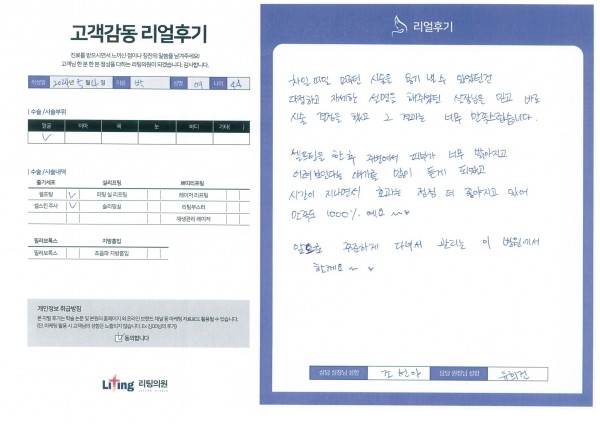 고객감동 리얼후기
진료를 받으시면서 느끼신 점이나 칭찬의 말씀을 남겨주세요!
고객님 한 분 한 분 정성을 다하는 리팅의원이 되겠습니다. 감사합니다.
작성일 2024년 5월 일 이름 박 성별 여 나이 44
| 수술 / 시술부위
얼굴 이마 목 눈 바디 기타( )
| 수술 / 시술내역
줄기세포 실리프팅 뾰띠리프팅
셀프팅 리팅 실 리프팅 레이저 리프팅
셀스킨 주사 슬리핑실 리팅부스터
재생관리 레이저
필러보톡스 지방흡입
필러보톡스 초음파 지방흡입
개인정보 취급방침
본 리얼 후기는 학술 논문 및 본원의 홈페이지 외 온라인 브랜드 채널 등 마케팅 자료로도 활용될 수 있습니다.
(단, 마케팅 활용 시 고객님의 성함은 노출되지 않습니다. Ex 김00님의 후기)
동의합니다
Liting 리팅의원
리얼후기
차일피일 미루던 시술을 용기 내 수 있었던건
다정하고 자세한 설명을 해주셨던 실장님을 믿고 바로
시술 결정을 했고 그 결과는 너무 만족스럽습니다.
셀프팅을 한 후 주변에서 피부가 너무 밝아지고
어려보인다는 얘기를 많이 듣게 되었고
시간이 지나면서 효과는 점점 더 좋아지고 있어
만족도 1000% 예요 ~
앞으로 꾸준하게 다녀서 관리는 이 병원에서
할게요 ~
상담 실장님 성함 담당 원장님 성함 유희건